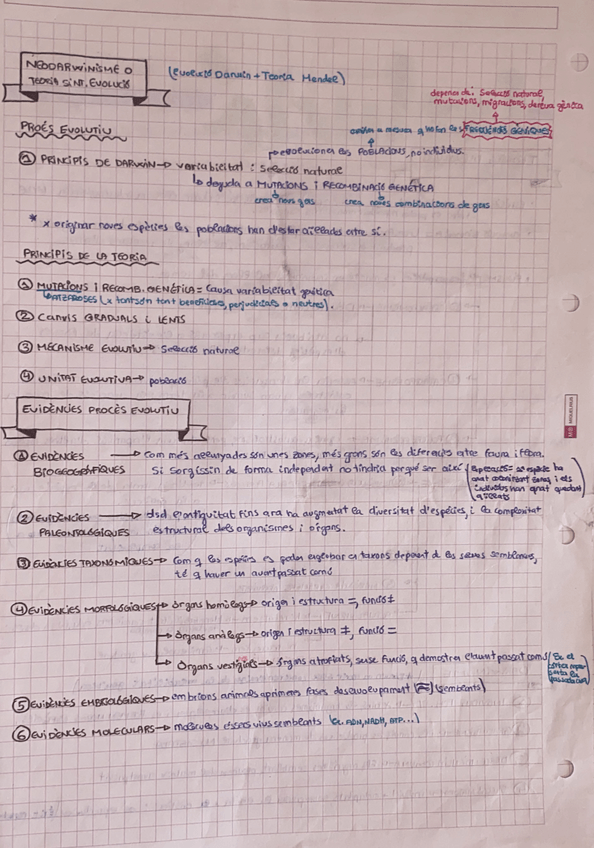 NEODARWINISME O
TEORIA SINT. EVOLUCIÓ
(Evolució Darwin + Teoria Mendel)
depenen de: Selecció natural,
mutacions, migracions, deriva gènica
PROCÉS EVOLUTIU
canvien a mesura q ho fan les FREQÜÈNCIES GÈNIQUES
evolucionen les POBLACIONS, no individus.
① PRINCIPIS DE DARWIN → variabilitat i selecció natural
↳ deguda a MUTACIONS i RECOMBINACIÓ GENÈTICA
crea nous gens
crea noves combinacions de gens
* x originar noves espècies les poblacions han d'estar aïllades entre sí.
PRINCIPIS DE LA TEORIA
① MUTACIONS i RECOMB. GENÈTICA = Causa variabilitat genètica
↳ ATZAROSES (x tant són tant beneficioses, perjudicials o neutres).
② CANVIS GRADUALS i LENTS
③ MECANISME EVOLUTIU → Selecció natural
④ UNITAT EVOLUTIVA → població
EVIDÈNCIES PROCÉS EVOLUTIU
MIQUELRIUS
① EVIDÈNCIES → Com més allunyades són unes zones, més grans són les diferències entre fauna i flora.
BIOGEOGRÀFIQUES Si sorgissin de forma independent no tindria perquè ser així
espècie ha
anat colonitzant zones i els
individus han anat quedant
aïllats
② EVIDÈNCIES → dsd l'antiguitat fins ara ha augmentat la diversitat d'espècies, i la complexitat
PALEONTOLÒGIQUES estructural dels organismes i òrgans.
③ EVIDÈNCIES TAXONÒMIQUES → Com q les espècies es poden englobar en taxons depenent de les seves semblances,
té q haver un avantpassat comú
④ EVIDÈNCIES MORFOLÒGIQUES → Òrgans homòlegs → origen i estructura =, funció ≠
→ Òrgans anàlegs → origen i estructura ≠, funció =
→ Òrgans vestigials → Òrgans atrofiats, sense funció, q demostra l'avantpassat comú
⑤ EVIDÈNCIES EMBRIOLÒGIQUES → embrions animals a primeres fases desenvolupament (semblants)
⑥ EVIDÈNCIES MOLECULARS → molècules éssers vius semblants (ex. ADN, NADH, ATP...)